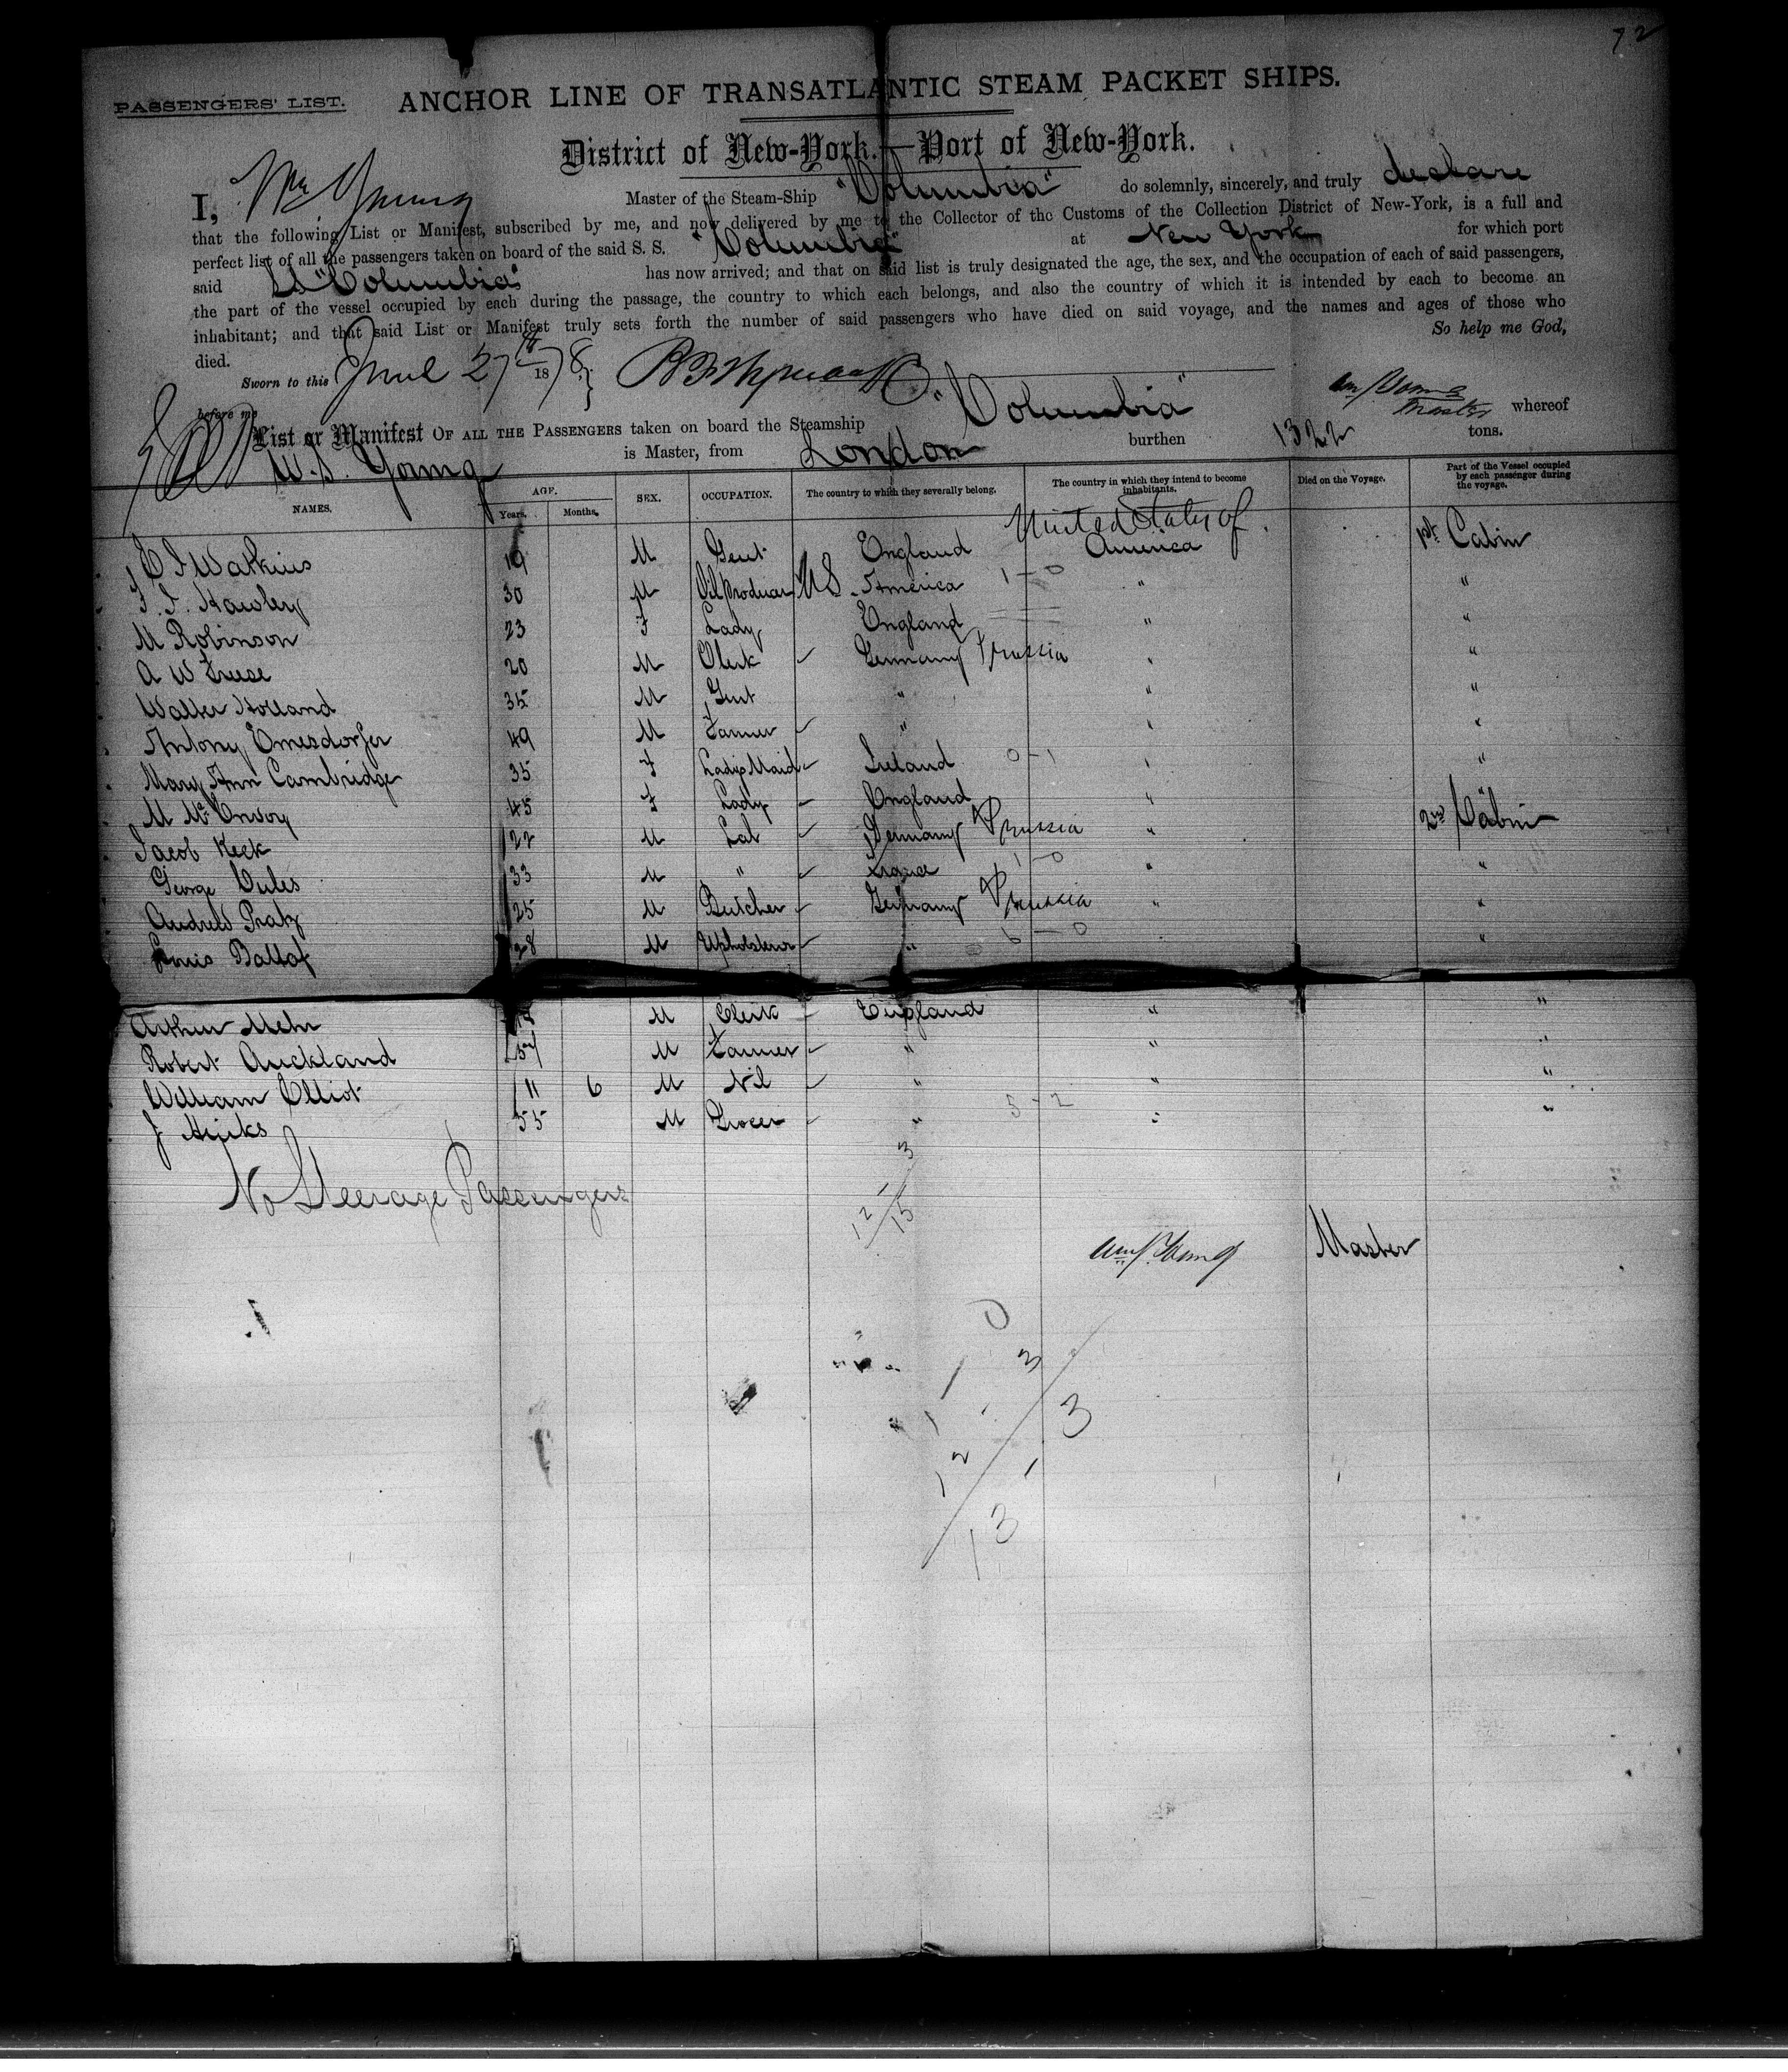 72
PASSENGERS' LIST. ANCHOR LINE OF TRANSATLANTIC STEAM PACKET SHIPS.
District of New-York.—Port of New-York.
I, Wm Young Master of the Steam-Ship "Columbia" do solemnly, sincerely, and truly declare
that the following List or Manifest, subscribed by me, and now delivered by me to the Collector of the Customs of the Collection District of New-York, is a full and
perfect list of all the passengers taken on board of the said S. S. "Columbia" at New York for which port
said SS "Columbia" has now arrived; and that on said list is truly designated the age, the sex, and the occupation of each of said passengers,
the part of the vessel occupied by each during the passage, the country to which each belongs, and also the country of which it is intended by each to become an
inhabitant; and that said List or Manifest truly sets forth the number of said passengers who have died on said voyage, and the names and ages of those who
died. So help me God,
Sworn to this June 27th 1878
before me Wm Young Master
List or Manifest OF ALL THE PASSENGERS taken on board the Steamship "Columbia" whereof
W.S. Young is Master, from London burthen 1322 tons.
NAMES. AGE. Years. Months. SEX. OCCUPATION. The country to which they severally belong. The country in which they intend to become inhabitants. Died on the Voyage. Part of the Vessel occupied by each passenger during the voyage.
Watkins 19 M Gent England United States of America 1st Cabin
F. Hawley 30 M Oil Producer US America 1-0 " "
M Robinson 23 F Lady England " "
A W Freese 20 M Clerk Germany Prussia " "
Walter Holland 35 M Gent " " "
Antony Emesdorfer 49 M Farmer " " "
Mary Ann Cambridge 35 F Ladys Maid Ireland 0-1 " "
M McEnvoy 45 F Lady England " "
Jacob Keck 22 M Lab Germany Prussia " 2nd Cabin
George Cules 33 M " France 1-0 " "
Andrew Pratz 25 M Butcher Germany Prussia " "
Louis Ballof 28 M Upholsterer " 6-0 " "
Arthur Mehr M Clerk England " "
Robert Auckland 57 M Farmer " " "
William Elliot 11 6 M Nil " " "
J Hicks 55 M Grocer " 5-2 " "
No Steerage Passengers
3
1
12/15
Wm Young Master
0
3
1
3
12
1
13